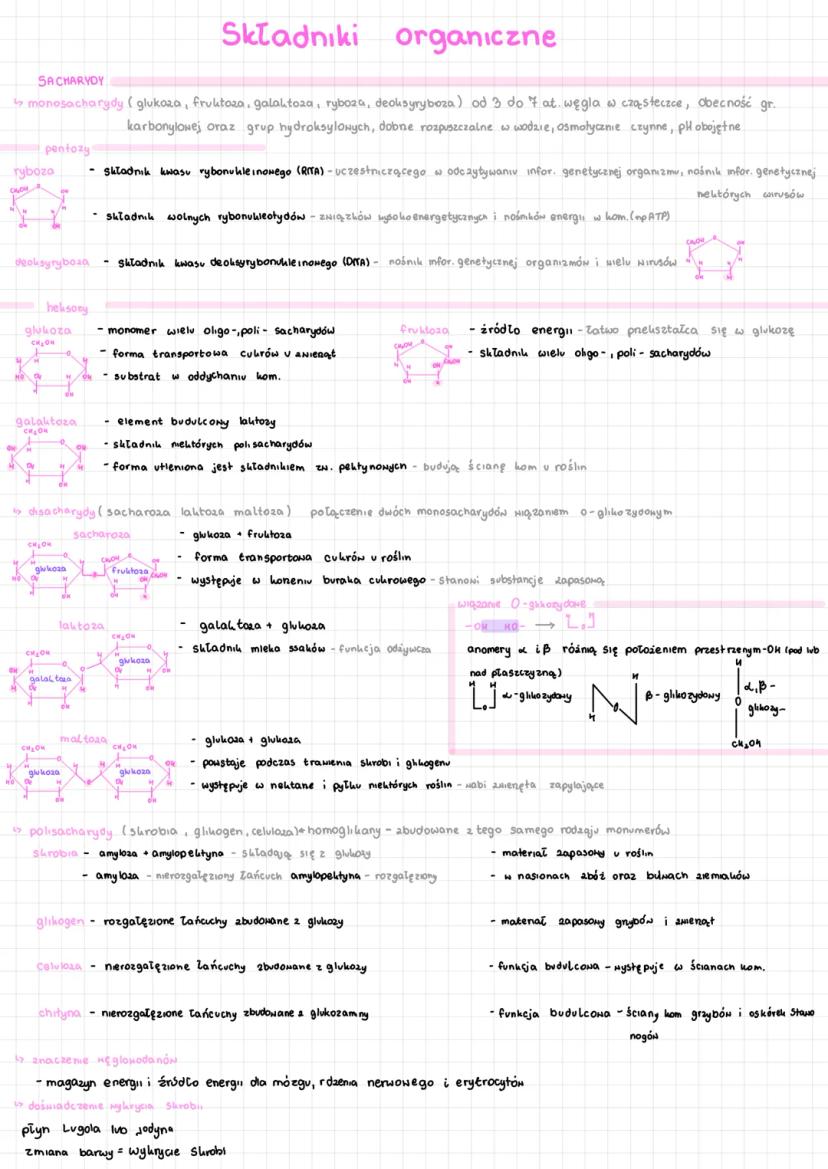 Składniki organiczne
SACHARYDY
↳ monosacharydy ( glukoza, fruktoza, galaktoza, ryboza, deoksyryboza) od 3 do 7 at. węgla w cząsteczce, obecność gr.
karbonylowej oraz grup hydroksylowych, dobrze rozpuszczalne w wodzie, osmotycznie czynne, pH obojętne
pentozy
ryboza - składnik kwasu rybonukleinowego (RNA) - uczestniczącego w odczytywaniu infor. genetycznej organizmu, nośnik infor. genetycznej
niektórych wirusów
- składnik wolnych rybonukleotydów - związków wysokoenergetycznych i nośników energii w kom. (np ATP)
deoksyryboza - składnik kwasu deoksyrybonukleinowego (DNA) - nośnik infor. genetycznej organizmów i wielu wirusów
heksozy
glukoza - monomer wielu oligo-, poli- sacharydów
- forma transportowa cukrów u zwierząt
- substrat w oddychaniu kom.
fruktoza - źródło energii - łatwo przekształca się w glukozę
- składnik wielu oligo-, poli- sacharydów
galaktoza - element budulcowy laktozy
- składnik niektórych polisacharydów
- forma utleniona jest składnikiem zw. pektynowych - budują ścianę kom u roślin
↳ disacharydy ( sacharoza laktoza maltoza) połączenie dwóch monosacharydów wiązaniem O-glikozydowym
sacharoza - glukoza + fruktoza
- forma transportowa cukrów u roślin
- występuje w korzeniu buraka cukrowego - stanowi substancje zapasową
glukoza fruktoza
laktoza - galaktoza + glukoza
- składnik mleka ssaków - funkcja odżywcza
glukoza
galaktoza
wiązanie O-glikozydowe
-OH HO- → [o]
anomery α i β różnią się położeniem przestrzennym -OH (pod lub
nad płaszczyzną)
H H
α-glikozydowy
β-glikozydowy
α,β-
glikozy-
CH₂OH
maltoza - glukoza + glukoza
- powstaje podczas trawienia skrobi i glikogenu
- występuje w nektarze i pyłku niektórych roślin - wabi zwierzęta zapylające
glukoza glukoza
↳ polisacharydy (skrobia, glikogen, celuloza)* homoglikany - zbudowane z tego samego rodzaju monumerów
skrobia - amyloza + amylopektyna - składają się z glukozy
- materiał zapasowy u roślin
- amyloza - nierozgałęziony łańcuch amylopektyna - rozgałęziony
- w nasionach zbóż oraz bulwach ziemniaków
glikogen - rozgałęzione łańcuchy zbudowane z glukozy
- materiał zapasowy grzybów i zwierząt
celuloza - nierozgałęzione łańcuchy zbudowane z glukozy
- funkcja budulcowa - występuje w ścianach kom.
chityna - nierozgałęzione łańcuchy zbudowane z glukozaminy
- funkcja budulcowa - ściany kom grzybów i oskórek stawo
nogów
↳ znaczenie węglowodanów
- magazyn energii i źródło energii dla mózgu, rdzenia nerwowego i erytrocytów
↳ doświadczenie wykrycia skrobii
płyn Lugola lub jodyna
zmiana barwy = wykrycie skrobi